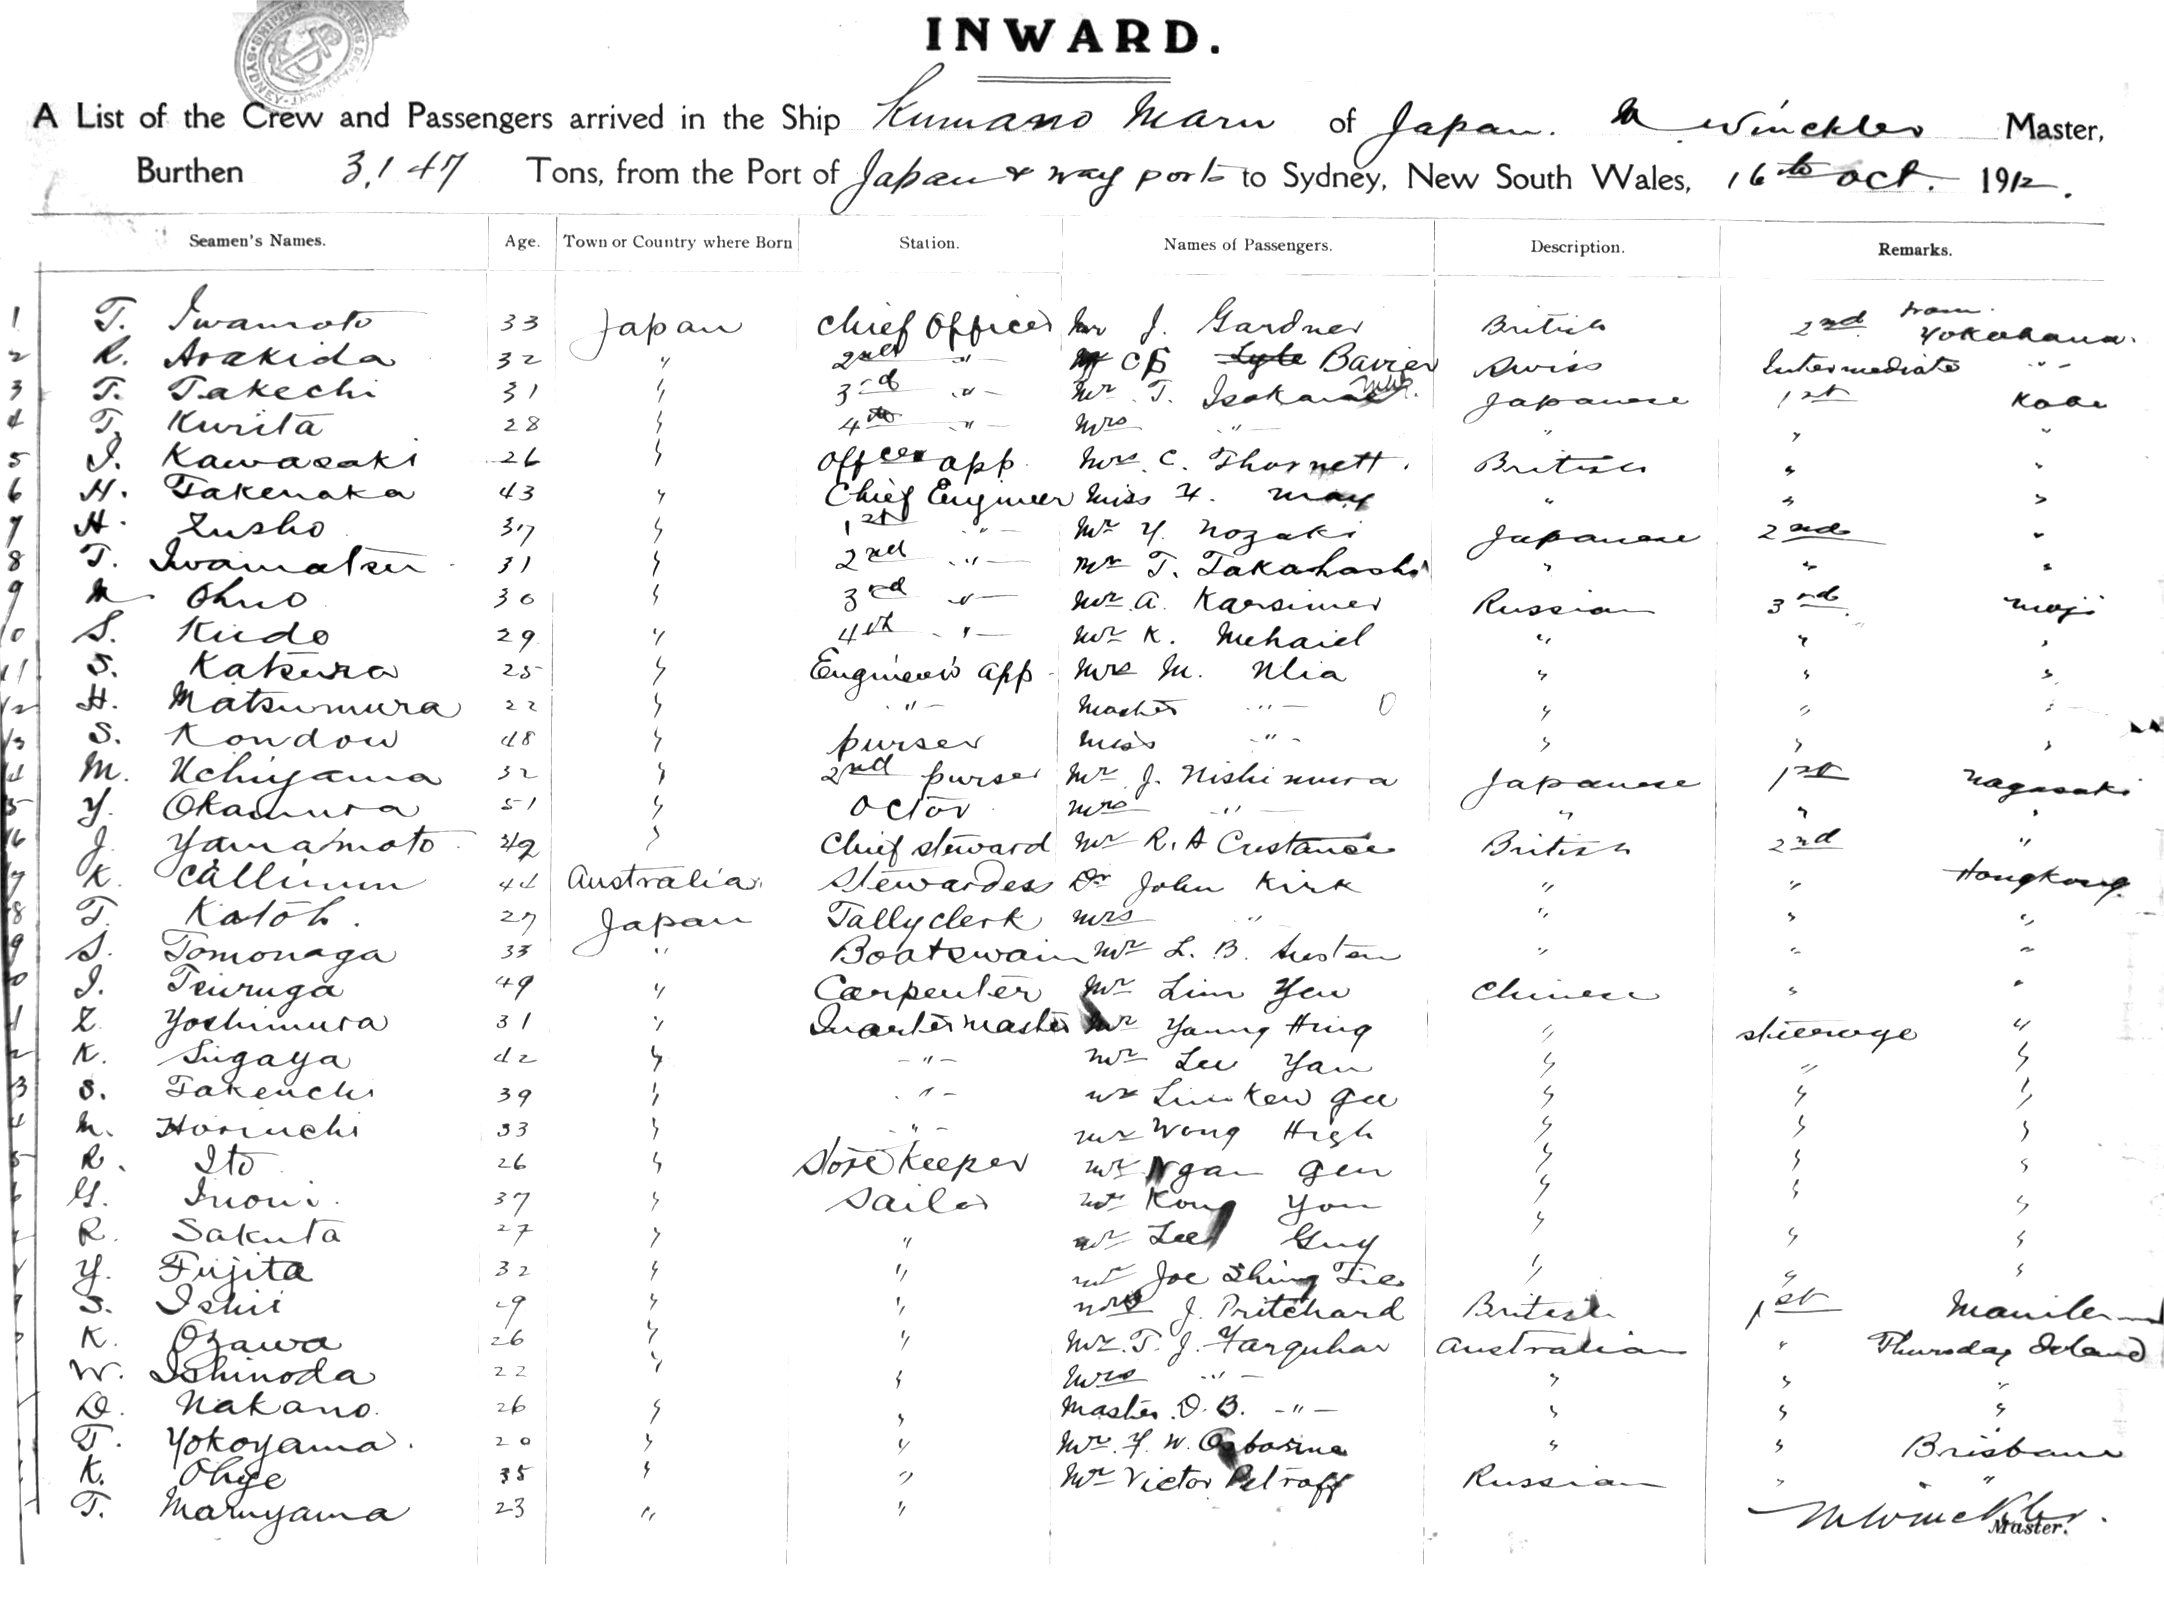 INWARD.
A List of the Crew and Passengers arrived in the Ship Kumano Maru of Japan. M Winckler Master,
Burthen 3,147 Tons, from the Port of Japan & way ports to Sydney, New South Wales, 16th Oct. 1912.
Seamen's Names. Age. Town or Country where Born Station. Names of Passengers. Description. Remarks.
1 T. Iwamoto 33 Japan Chief Officer Mr J. Gardner British 2nd from Yokohama.
2 R. Arakida 32 " 2nd " Bavier Swiss Intermediate "
3 T. Takechi 31 " 3rd " Mr T. Japanese 1st Kobe
4 T. Kurita 28 " 4th " Mrs " " " "
5 I. Kawasaki 26 " Officer app. Mrs. C. Thornett. British " "
6 H. Takenaka 43 " Chief Engineer Miss H. May " " "
7 H. Zusho 37 " 1st " Mr Y. Nozaki Japanese 2nd "
8 T. Iwamatsu 31 " 2nd " Mr T. Takahashi " " "
9 M Ohno 30 " 3rd " Mr A. Karsimer Russian 3rd Moji
10 S. Kudo 29 " 4th " Mr K. Mehaid " " "
11 S. Katsura 25 " Engineer's app. Mrs M. Nlia " " "
12 H. Matsumura 22 " " Master " " " "
13 S. Kondow 48 " purser Miss " " " "
14 M. Uchiyama 32 " 2nd purser Mr J. Nishimura Japanese 1st Nagasaki
15 Y. Okamura 51 " octor Mrs " " " "
16 J. Yamamoto " Chief steward Mr R. A Custance British 2nd "
17 K. Callinun 44 Australia. Stewardess Dr John Kirk " " Hongkong
18 T. Katoh. 27 Japan Tallyclerk Mrs " " " "
19 S. Tomonaga 33 " Boatswain Mr L. B. Austen " " "
20 I. Tsuruga 49 " Carpenter Mr Lim Yew Chinese " "
21 Z. Yoshimura 31 " Quartermaster Mr Young Hing " steerage "
22 K. Sugaya 42 " " Mr Lee Yan " " "
23 S. Takeuchi 39 " " Mr Lim Kew Gee " " "
24 M. Horiuchi 33 " " Mr Wong High " " "
25 R. Ito 26 " Store Keeper Mr Ngan Gen " " "
26 G. Inoui. 37 " Sailor Mr Kong You " " "
R. Sakuta 27 " " Mr Lee Guy " " "
Y. Fujita 32 " " Mr Joe Shing Tie " " "
S. Ishii 29 " " Mrs J. Pritchard British 1st Manila
K. Ozawa 26 " " Mr. T. J. Farquhar Australian " Thursday Island
W. Ishinoda 22 " " Mrs " " " "
D. Nakano. 26 " " Master. D. B. " " " "
T. Yokoyama. 20 " " Mr. F. W. Osborne " " Brisbane
K. Ohye 35 " " Mr Victor Petroff Russian " "
T. Maruyama 23 " "
M Winckler.
Master.